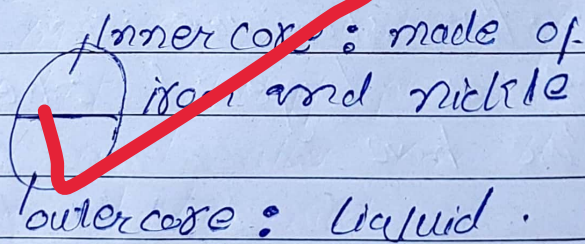 Inner core : made of
iron and nickle
outer core : liquid .